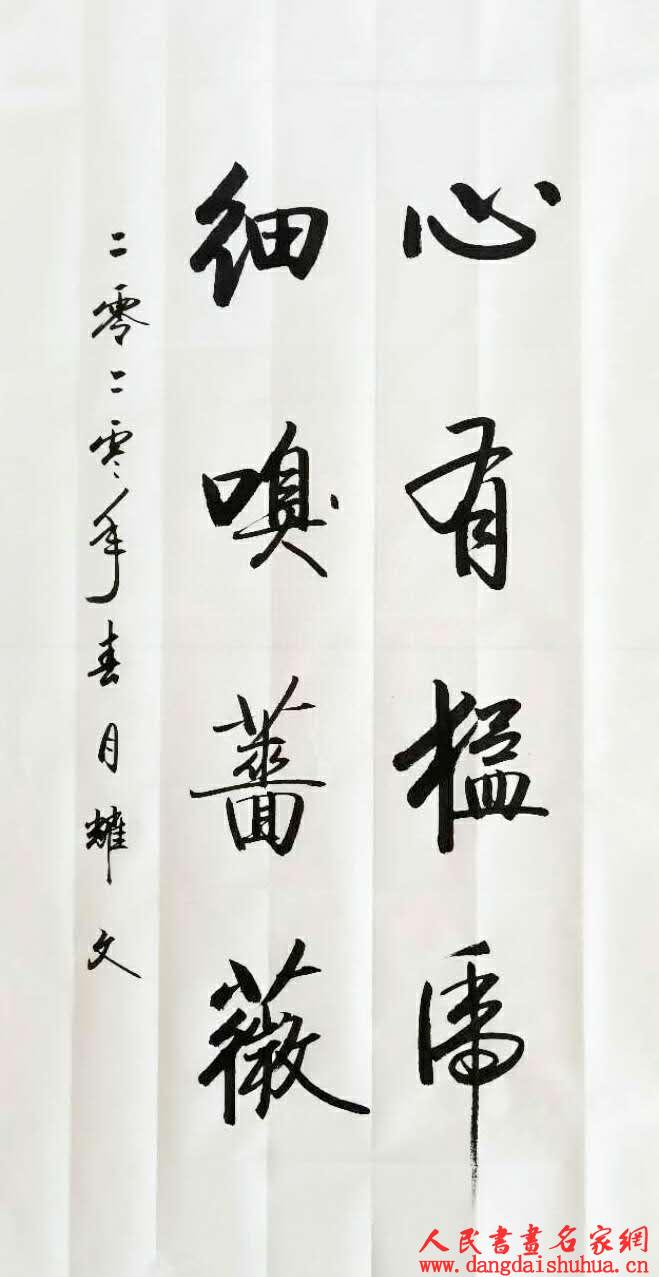 心有猛虎
細嗅薔薇
二零二零年春月耀文
人民書畫名家網
www.dangdaishuhua.cn